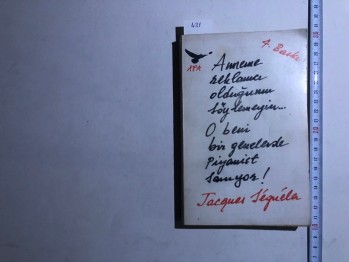 431
4. Baskı
AFA
Anneme
reklamcı
olduğumu
söylemeyin...
O beni
bir genelevde
Piyanist
sanıyor!
Jacques Séguéla